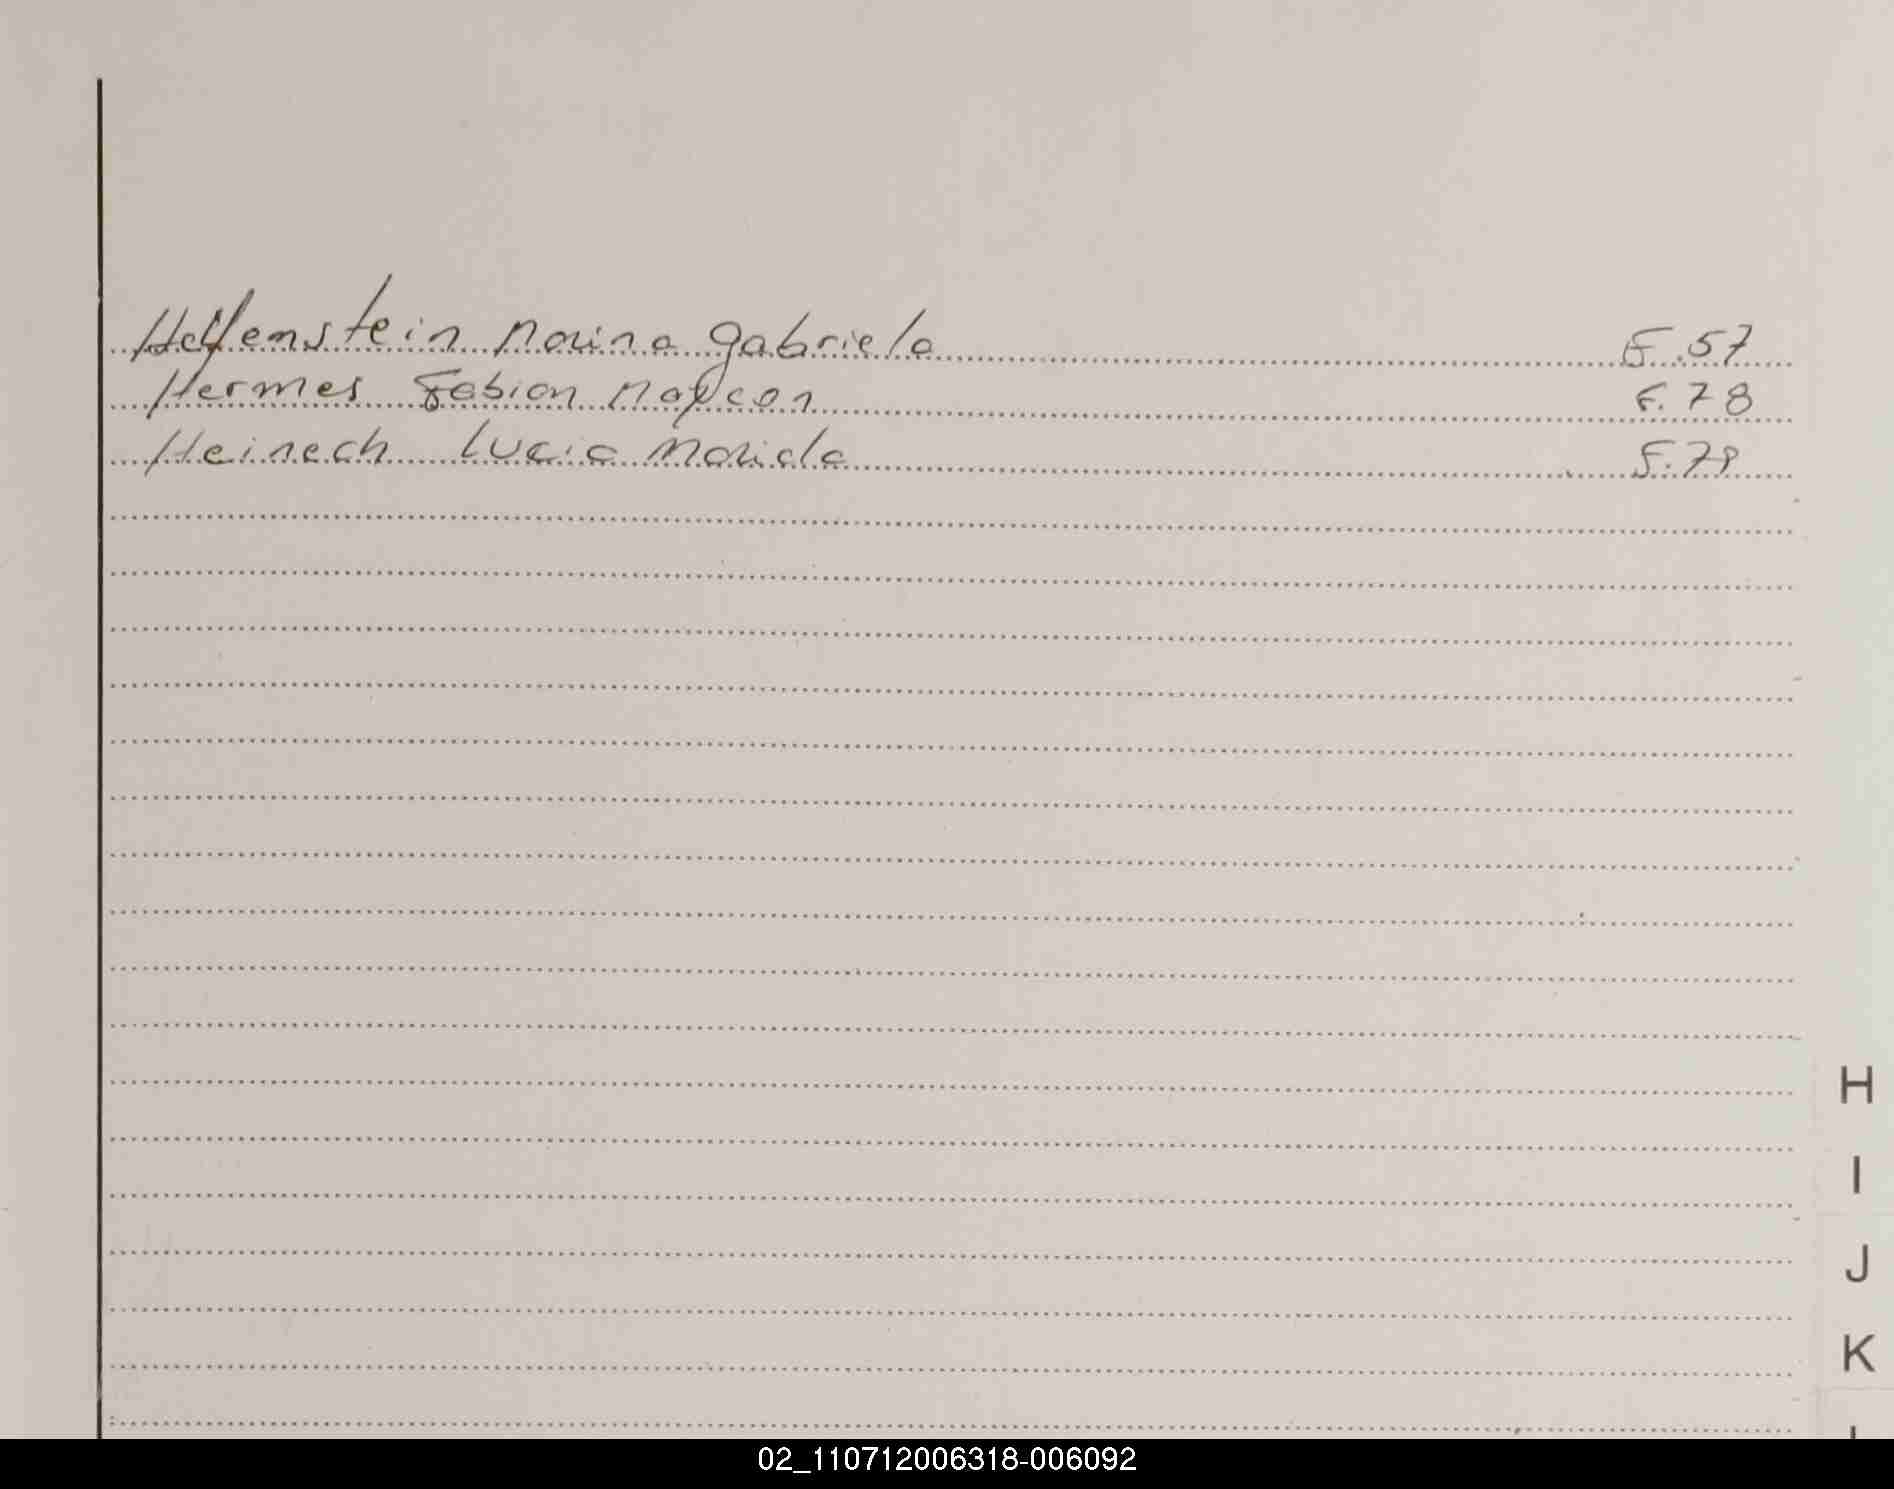 Helfenstein Marina Gabriela F. 57
Hermes Fabian Maycon F. 78
Heinech Lucia Mariela F. 79
H
I
J
K
02_110712006318-006092